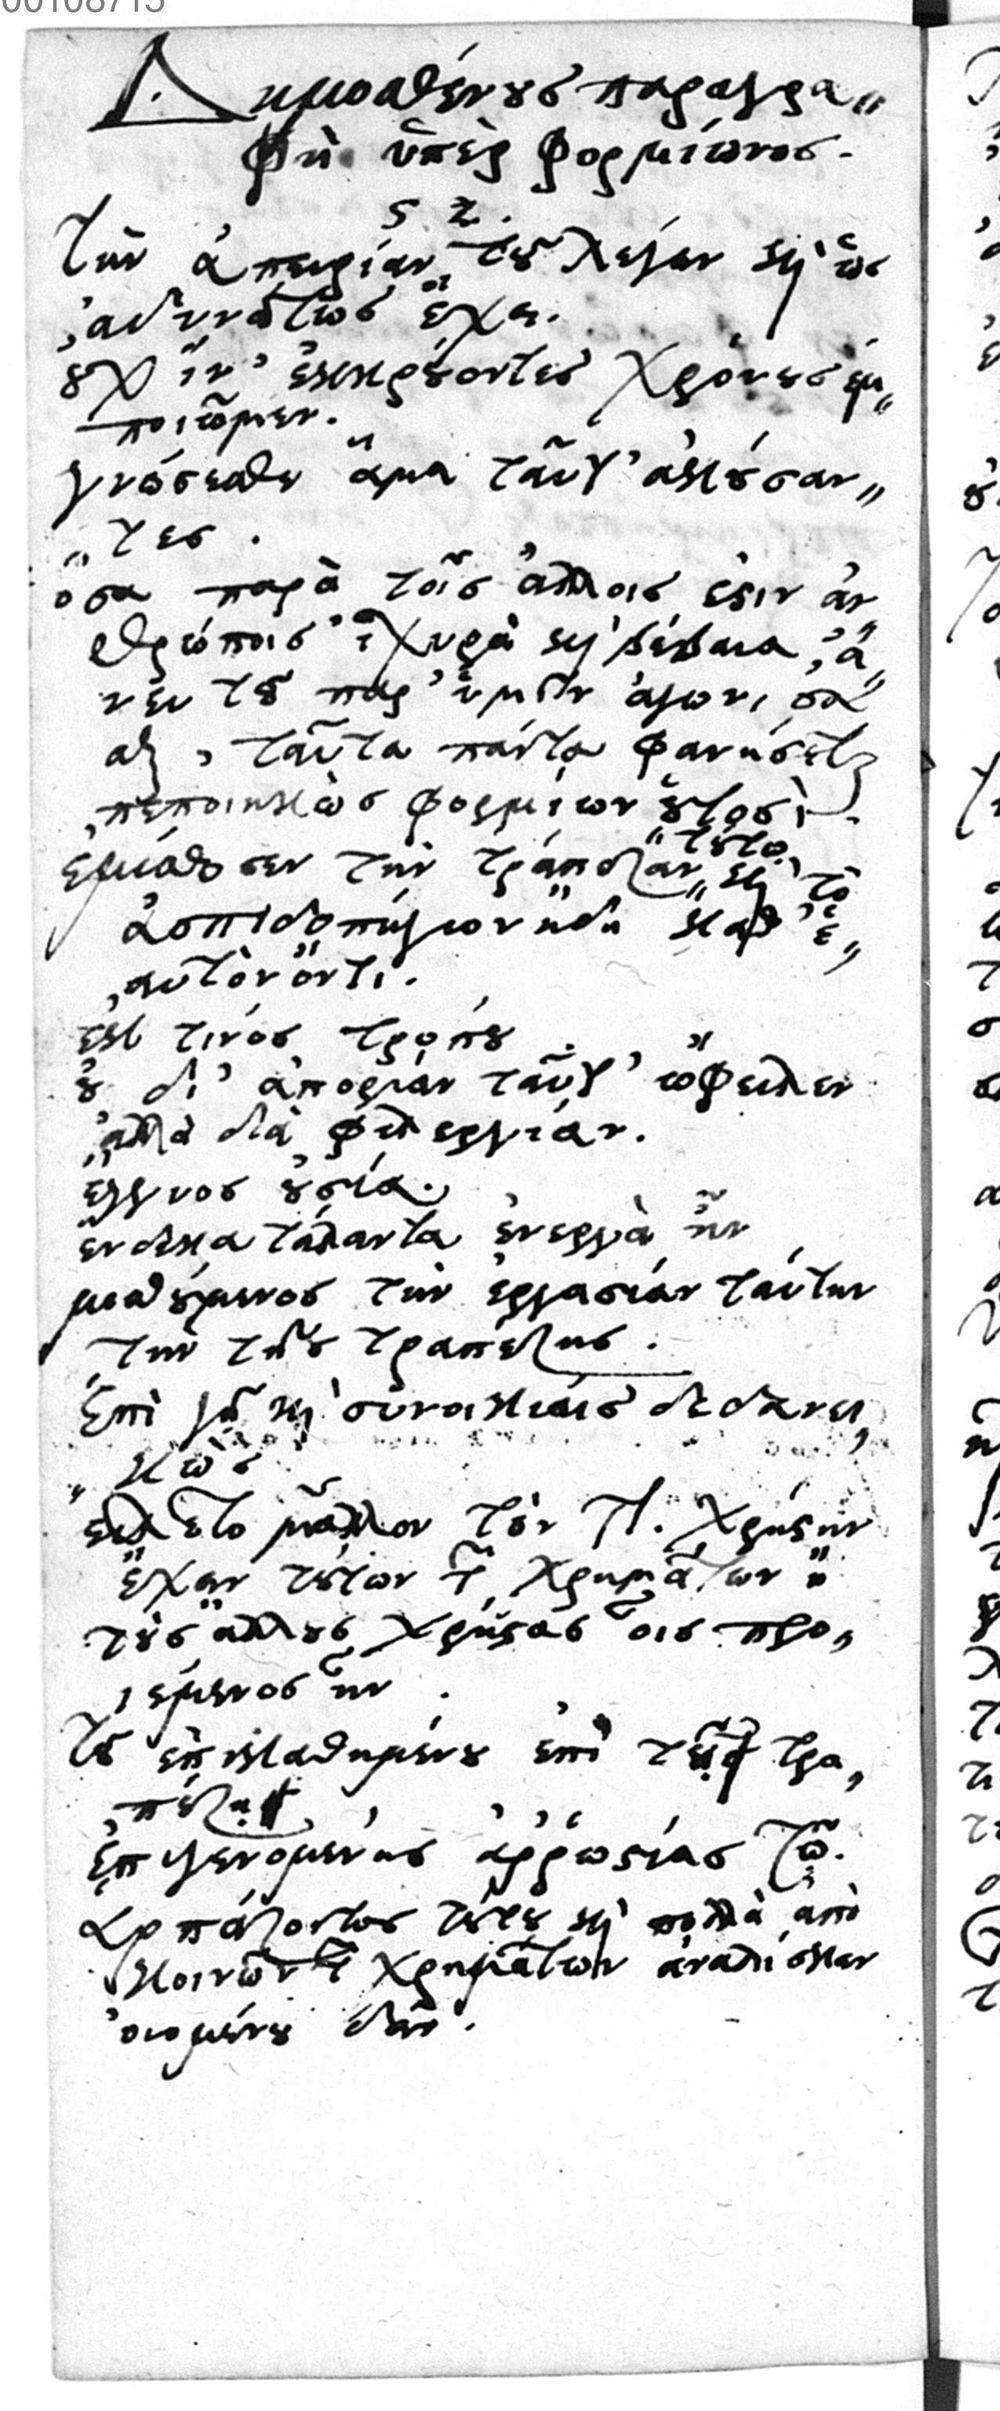 00108713
Δημοσθένους παραγρα„
φὴ ὑπὲρ Φορμίωνος.
ϛ ζ.
Τὴν ἀπειρίαν τοῦ λέγειν καὶ ὡς
ἀδυνάτως ἔχει.
οὐχ ἵν' ἐκκρούοντες χρόνους ἐμ„
ποιῶμεν.
γνώσεσθε ἅμα ταῦτ' ἀκούσαν„
„τες.
ὅσα παρὰ τοῖς ἄλλοις ἐστὶν ἀν„
θρώποις ἰσχυρὰ καὶ βέβαια, ἄ„
νευ τοῦ παρ' ὑμῖν ἀγωνίσα
σθαι, ταῦτα πάντα φανήσεται
πεποιηκὼς Φορμίων οὑτοσὶ.
ἐμίσθωσεν τὴν τράπεζαν „τούτῳ καὶ τὸ
ἀσπιδοπήγιον ἤδη καθ' ἑ„
αυτὸν ὄντι.
ἐκ τινός τρόπου
οὐ δι' ἀπορίαν ταῦτ' ὤφειλεν
ἀλλὰ διὰ φιλεργίαν.
ἔγγυος οὐσία.
ἕνδεκα τάλαντα ἐνεργὰ ἦν
μισθούμενος τὴν ἐργασίαν ταύτην
τὴν τῆς τραπέζης.
ἐπὶ γῇ καὶ συνοικίαις δεδανει„
„κὼς
εἵλετο μᾶλλον τὸν π. χρήστην
ἔχειν τούτων τῶν χρημάτων ἢ
τοὺς ἄλλους χρήστας οἷς προ„
ιεμένος ἦν.
τοῦ ἐπικαθημένου ἐπὶ τῇ τρα„
πέζῃ
ἐπιγενομένης ἀῤῥωστίας τῷ.
ἁρπάζοντος τούτου καὶ πολλὰ ἀπὸ
κοινῶν τῶν χρημάτων ἀναλίσκειν
οἰομένου δεῖν.